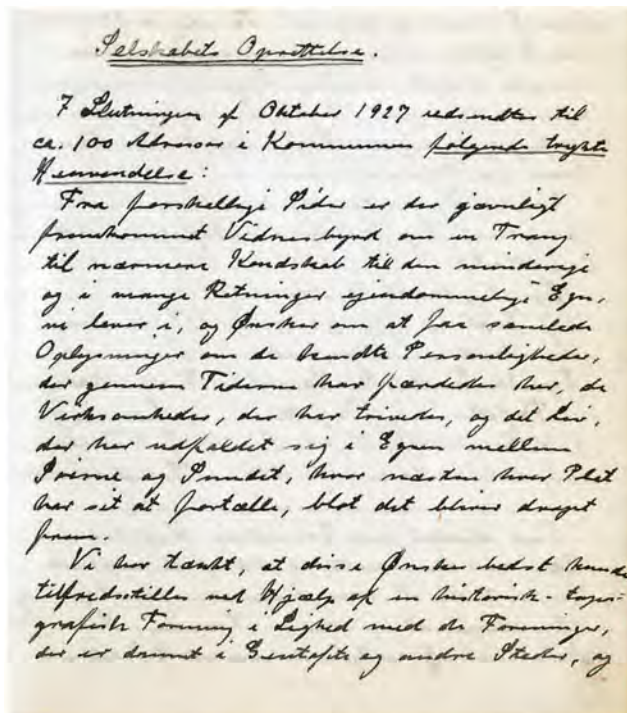 Selskabets Oprettelse.
I Slutningen af Oktober 1927 udsendtes til
ca. 100 Adresser i Kommunen følgende trykte
Henvendelse:
Fra forskellige Sider er der jævnligt
fremkommet Vidnesbyrd om en Trang
til nærmere Kendskab til den minderige
og i mange Retninger ejendommelige Egn,
vi lever i, og Ønsker om at faa samlede
Oplysninger om de kendte Personligheder,
der gennem Tiderne har færdedes her, de
Virksomheder, der har trivedes, og det Liv,
der har udfoldet sig i Egnen mellem
Søerne og Sundet, hvor næsten hver Plet
har sit at fortælle, blot det bliver draget
frem.
Vi har tænkt, at disse Ønsker bedst kunde
tilfredsstilles ved Hjælp af en historisk-topo-
grafisk Forening i Lighed med de Foreninger,
der er dannet i Gentofte og andre Steder, og